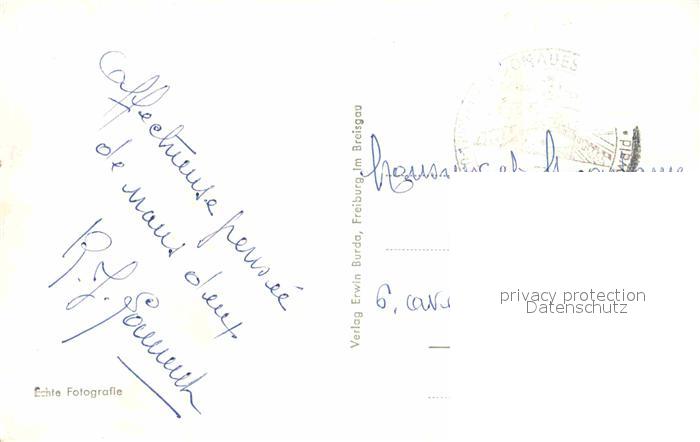 affectueuse pensée
de nous deux
R.J.
Echte Fotografie
Verlag Erwin Burda, Freiburg im Breisgau
Monsieur et
6, ave
wald
privacy protection
Datenschutz